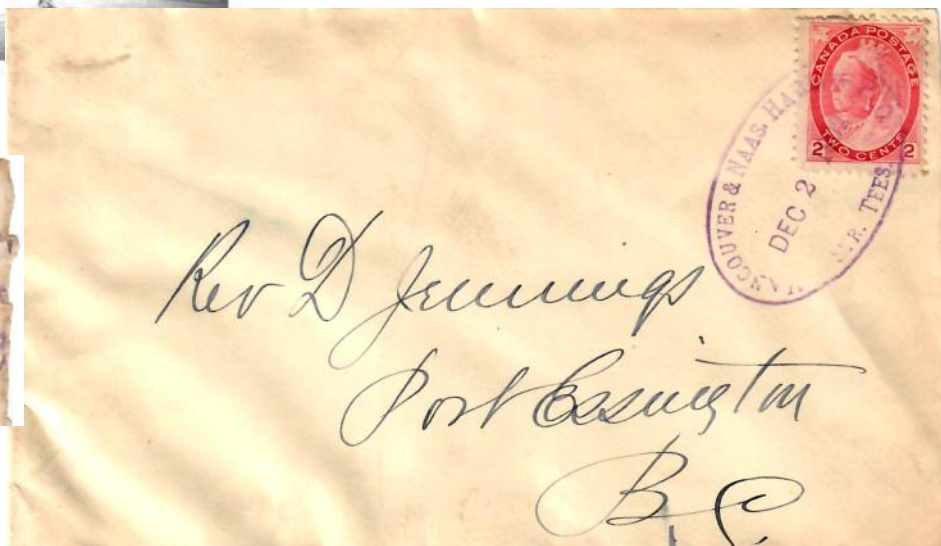 CANADA POSTAGE
2 TWO CENTS 2
VANCOUVER & NAAS. HAR
DEC 2
STR. TEES.
Rev D Jennings
Port Essington
B C